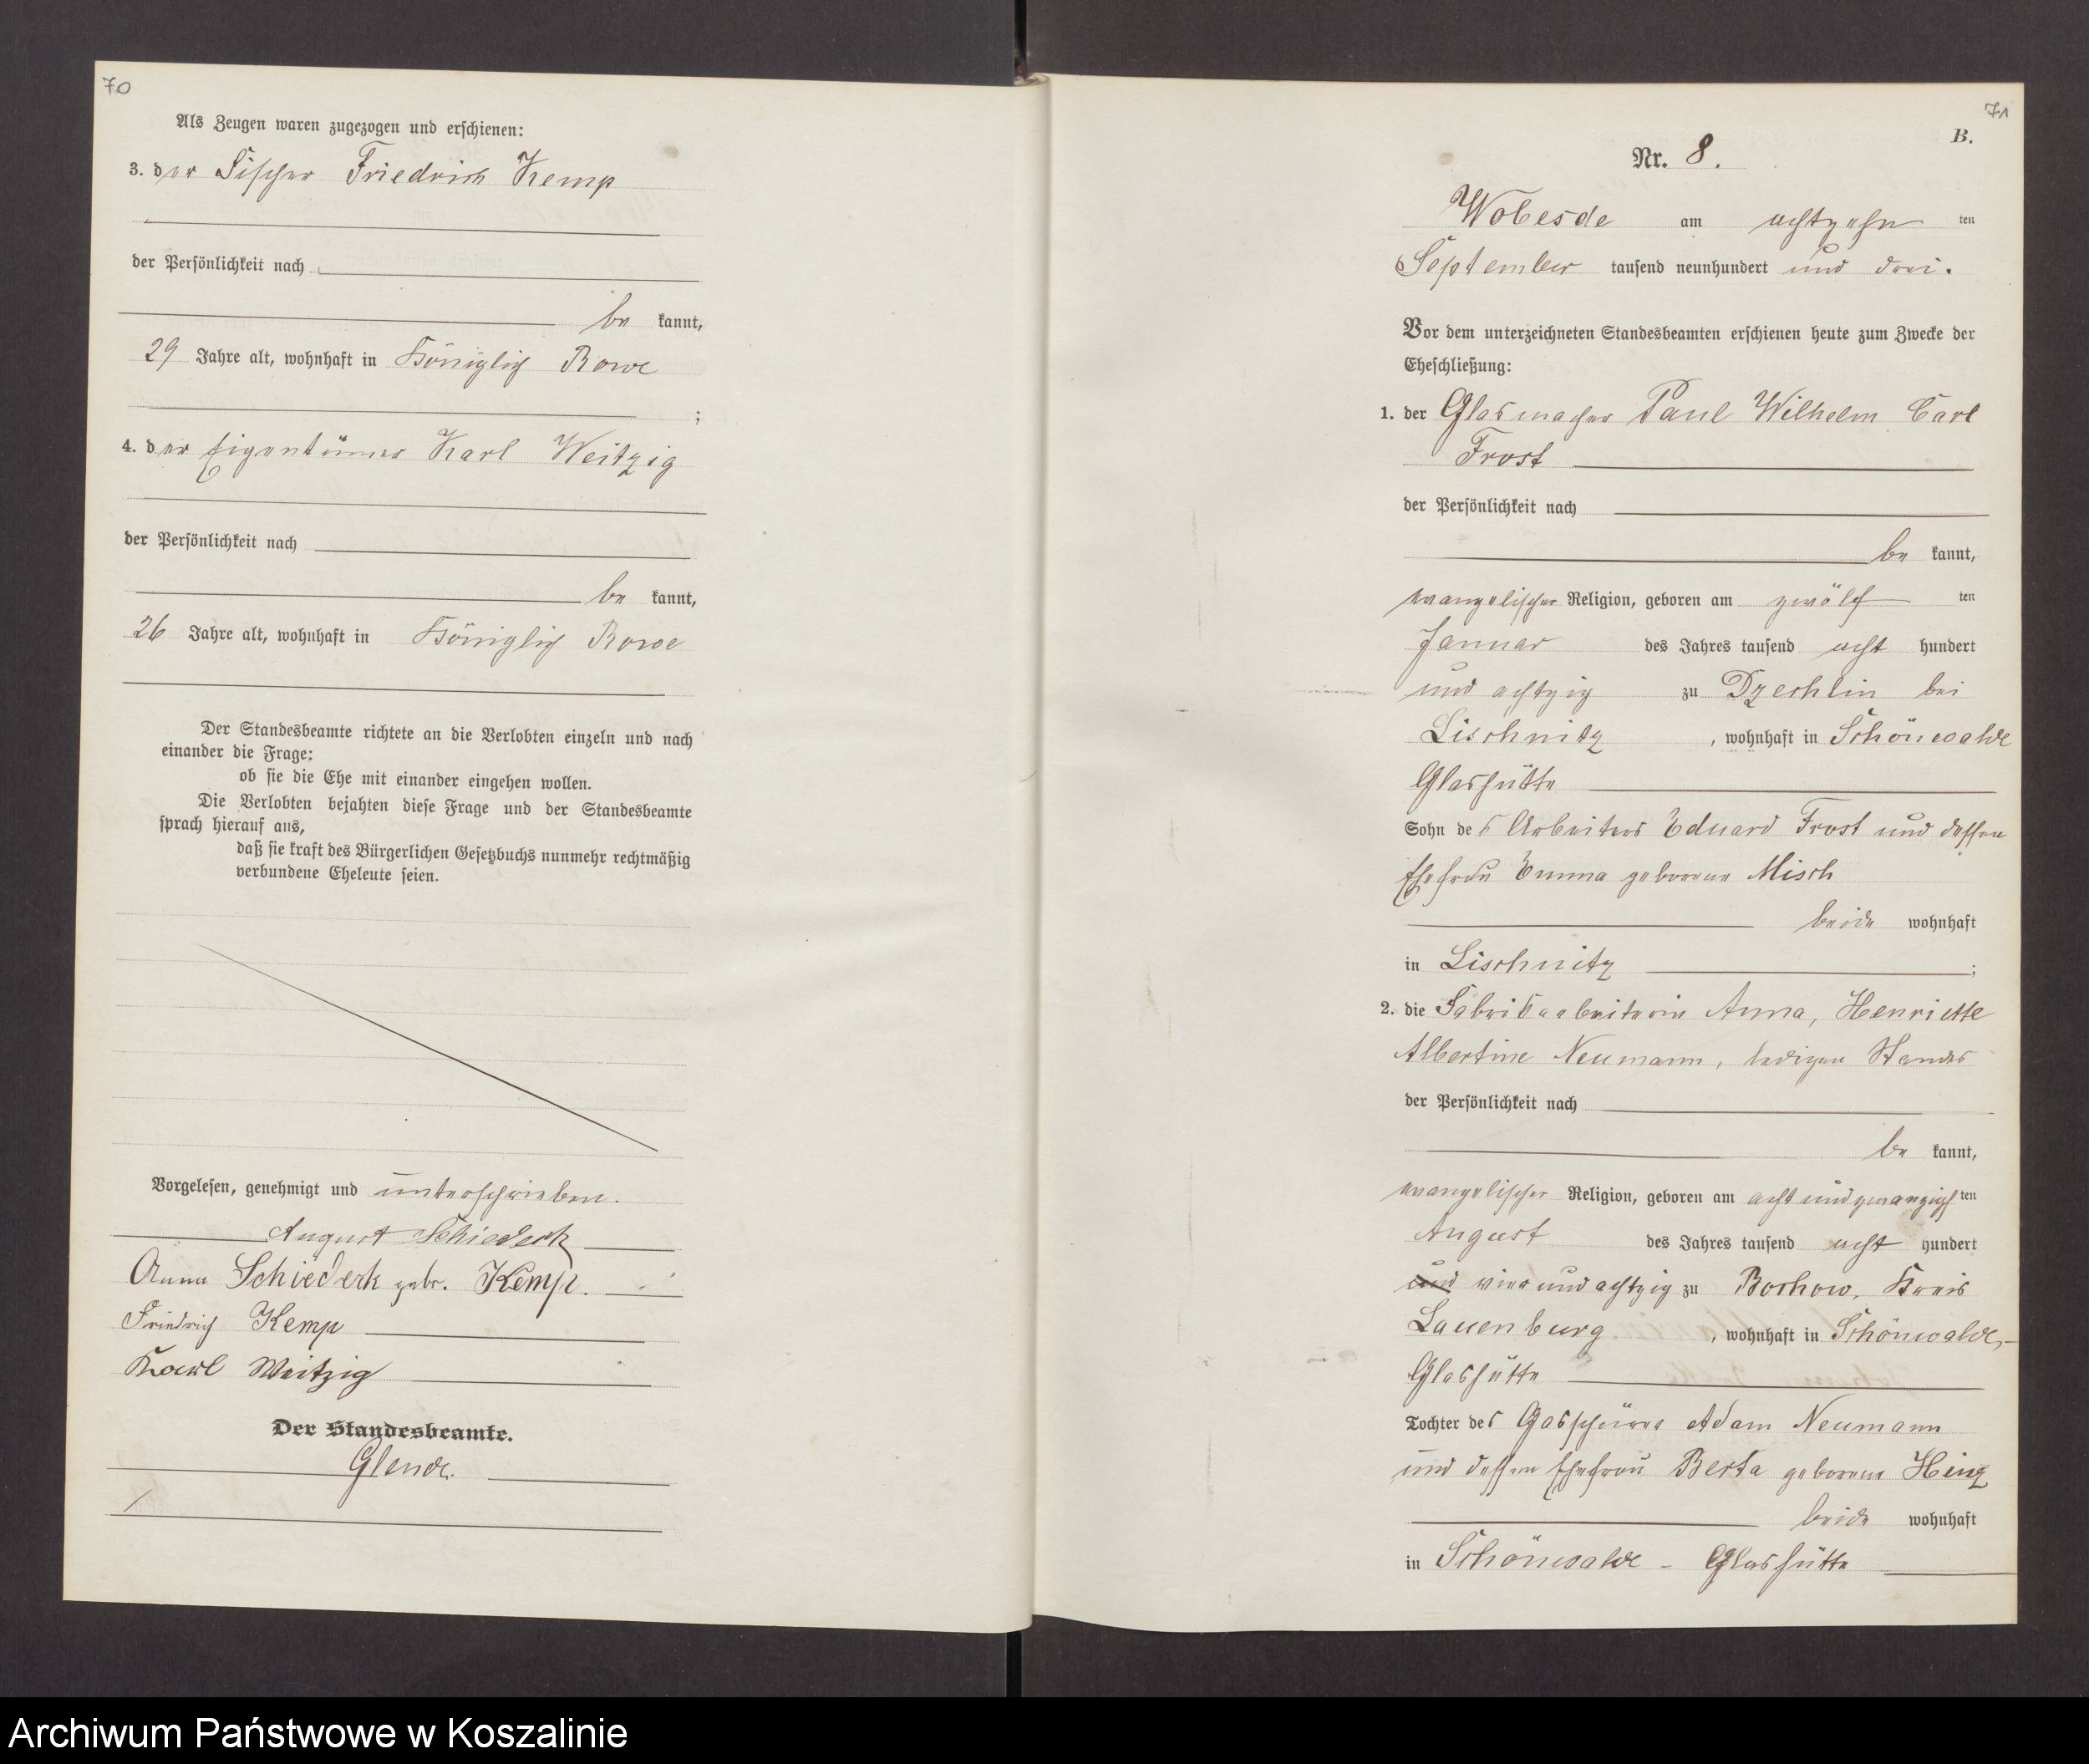 70
Als Zeugen waren zugezogen und erschienen:
3. der Fischer Friedrich Kemp
der Persönlichkeit nach
be kannt,
29 Jahre alt, wohnhaft in Königlich Rowe
;
4. der Eigentümer Karl Weitzig
der Persönlichkeit nach
be kannt,
26 Jahre alt, wohnhaft in Königlich Rowe
Der Standesbeamte richtete an die Verlobten einzeln und nach
einander die Frage:
ob sie die Ehe mit einander eingehen wollen.
Die Verlobten bejahten diese Frage und der Standesbeamte
sprach hierauf aus,
daß sie kraft des Bürgerlichen Gesetzbuchs nunmehr rechtmäßig
verbundene Eheleute seien.
Vorgelesen, genehmigt und unterschrieben.
August Schiederk
Anna Schiederk gebr. Kemp.
Friedrich Kemp
Karl Weitzig
Der Standesbeamte.
Glende.
71
B.
Nr. 8.
Wobesde am achtzehn ten
September tausend neunhundert und drei.
Vor dem unterzeichneten Standesbeamten erschienen heute zum Zwecke der
Eheschließung:
1. der Glasmacher Paul Wilhelm Carl
Frost
der Persönlichkeit nach
be kannt,
evangelischer Religion, geboren am zwölf ten
Januar des Jahres tausend acht hundert
und achtzig zu Dzechlin bei
Lischnitz, wohnhaft in Schönwalde
Glashütte
Sohn des Arbeiters Eduard Frost und dessen
Ehefrau Emma geborene Misch
beide wohnhaft
in Lischnitz ;
2. die Fabrikarbeiterin Anna, Henriette
Albertine Neumann, ledigen Standes
der Persönlichkeit nach
be kannt,
evangelischer Religion, geboren am acht und zwanzigsten
August des Jahres tausend acht hundert
und vier und achtzig zu Bochow, Kreis
Lauenburg, wohnhaft in Schönwalde,-
Glashütte
Tochter des Gasschürer Adam Neumann
und dessen Ehefrau Berta geborene Hinz
beide wohnhaft
in Schönwalde - Glashütte
Archiwum Państwowe w Koszalinie